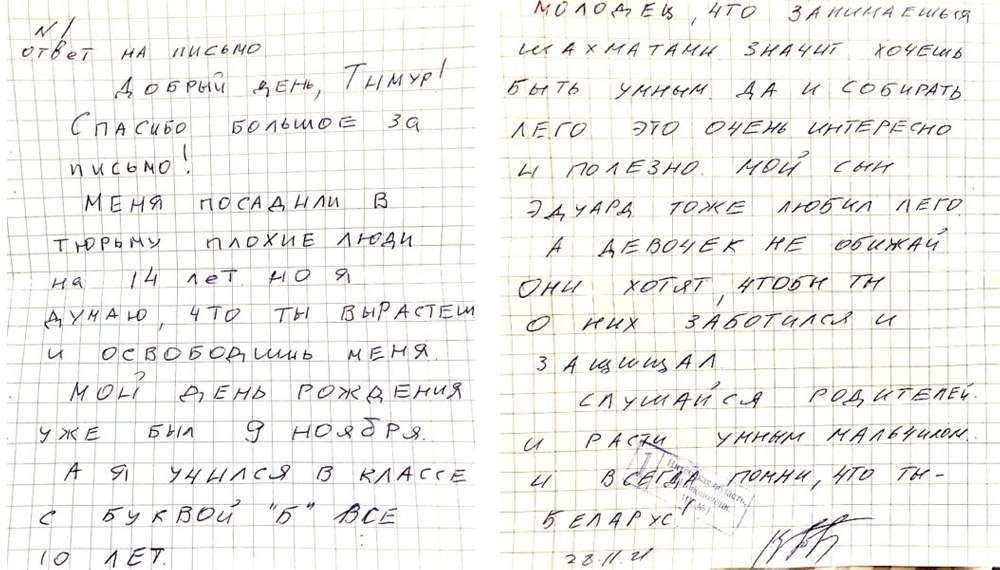 N 1
ответ на письмо
Добрый день, Тимур!
Спасибо большое за
письмо!
Меня посадили в
тюрьму плохие люди
на 14 лет но я
думаю, что ты вырастеш
и освободишь меня.
Мой день рождения
уже был 9 ноября.
А я учился в классе
с буквой "Б" все
10 лет.
Молодец, что занимаешься
шахматами значит хочешь
быть умным. Да и собирать
лего это очень интересно
и полезно. Мой сын
Эдуард тоже любил лего.
А девочек не обижай
они хотят, чтобы ты
о них заботился и
защищал
Слушайся родителей.
и расти умным мальчиком.
и всегда помни, что ты -
Беларус!
1
область
28.11.21